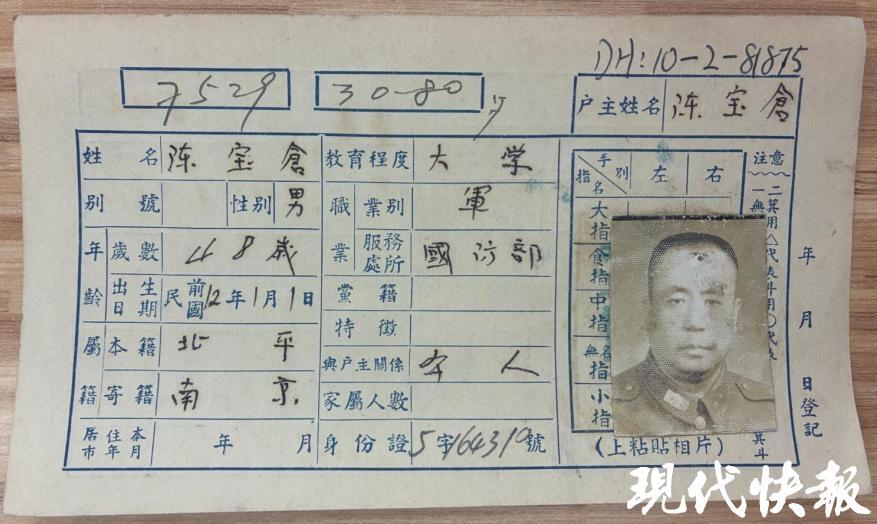 DH:10-2-81875
7529 30-80
户主姓名 陈宝倉
姓名 陈宝倉 教育程度 大学
別號 性别 男 職業 業别 軍
年齡 歲數 48歲 服務處所 國防部
出生日期 民國前12年1月1日 黨籍
特徵
屬籍 本籍 北平 與戶主關係 本人
寄籍 南京 家屬人數
居住本市年月 年 月 身份證 5字164319號
手別 指名 左 右
大指
食指
中指
無名指
小指
(上粘貼相片)
注意
年 月 日登記
現代快報